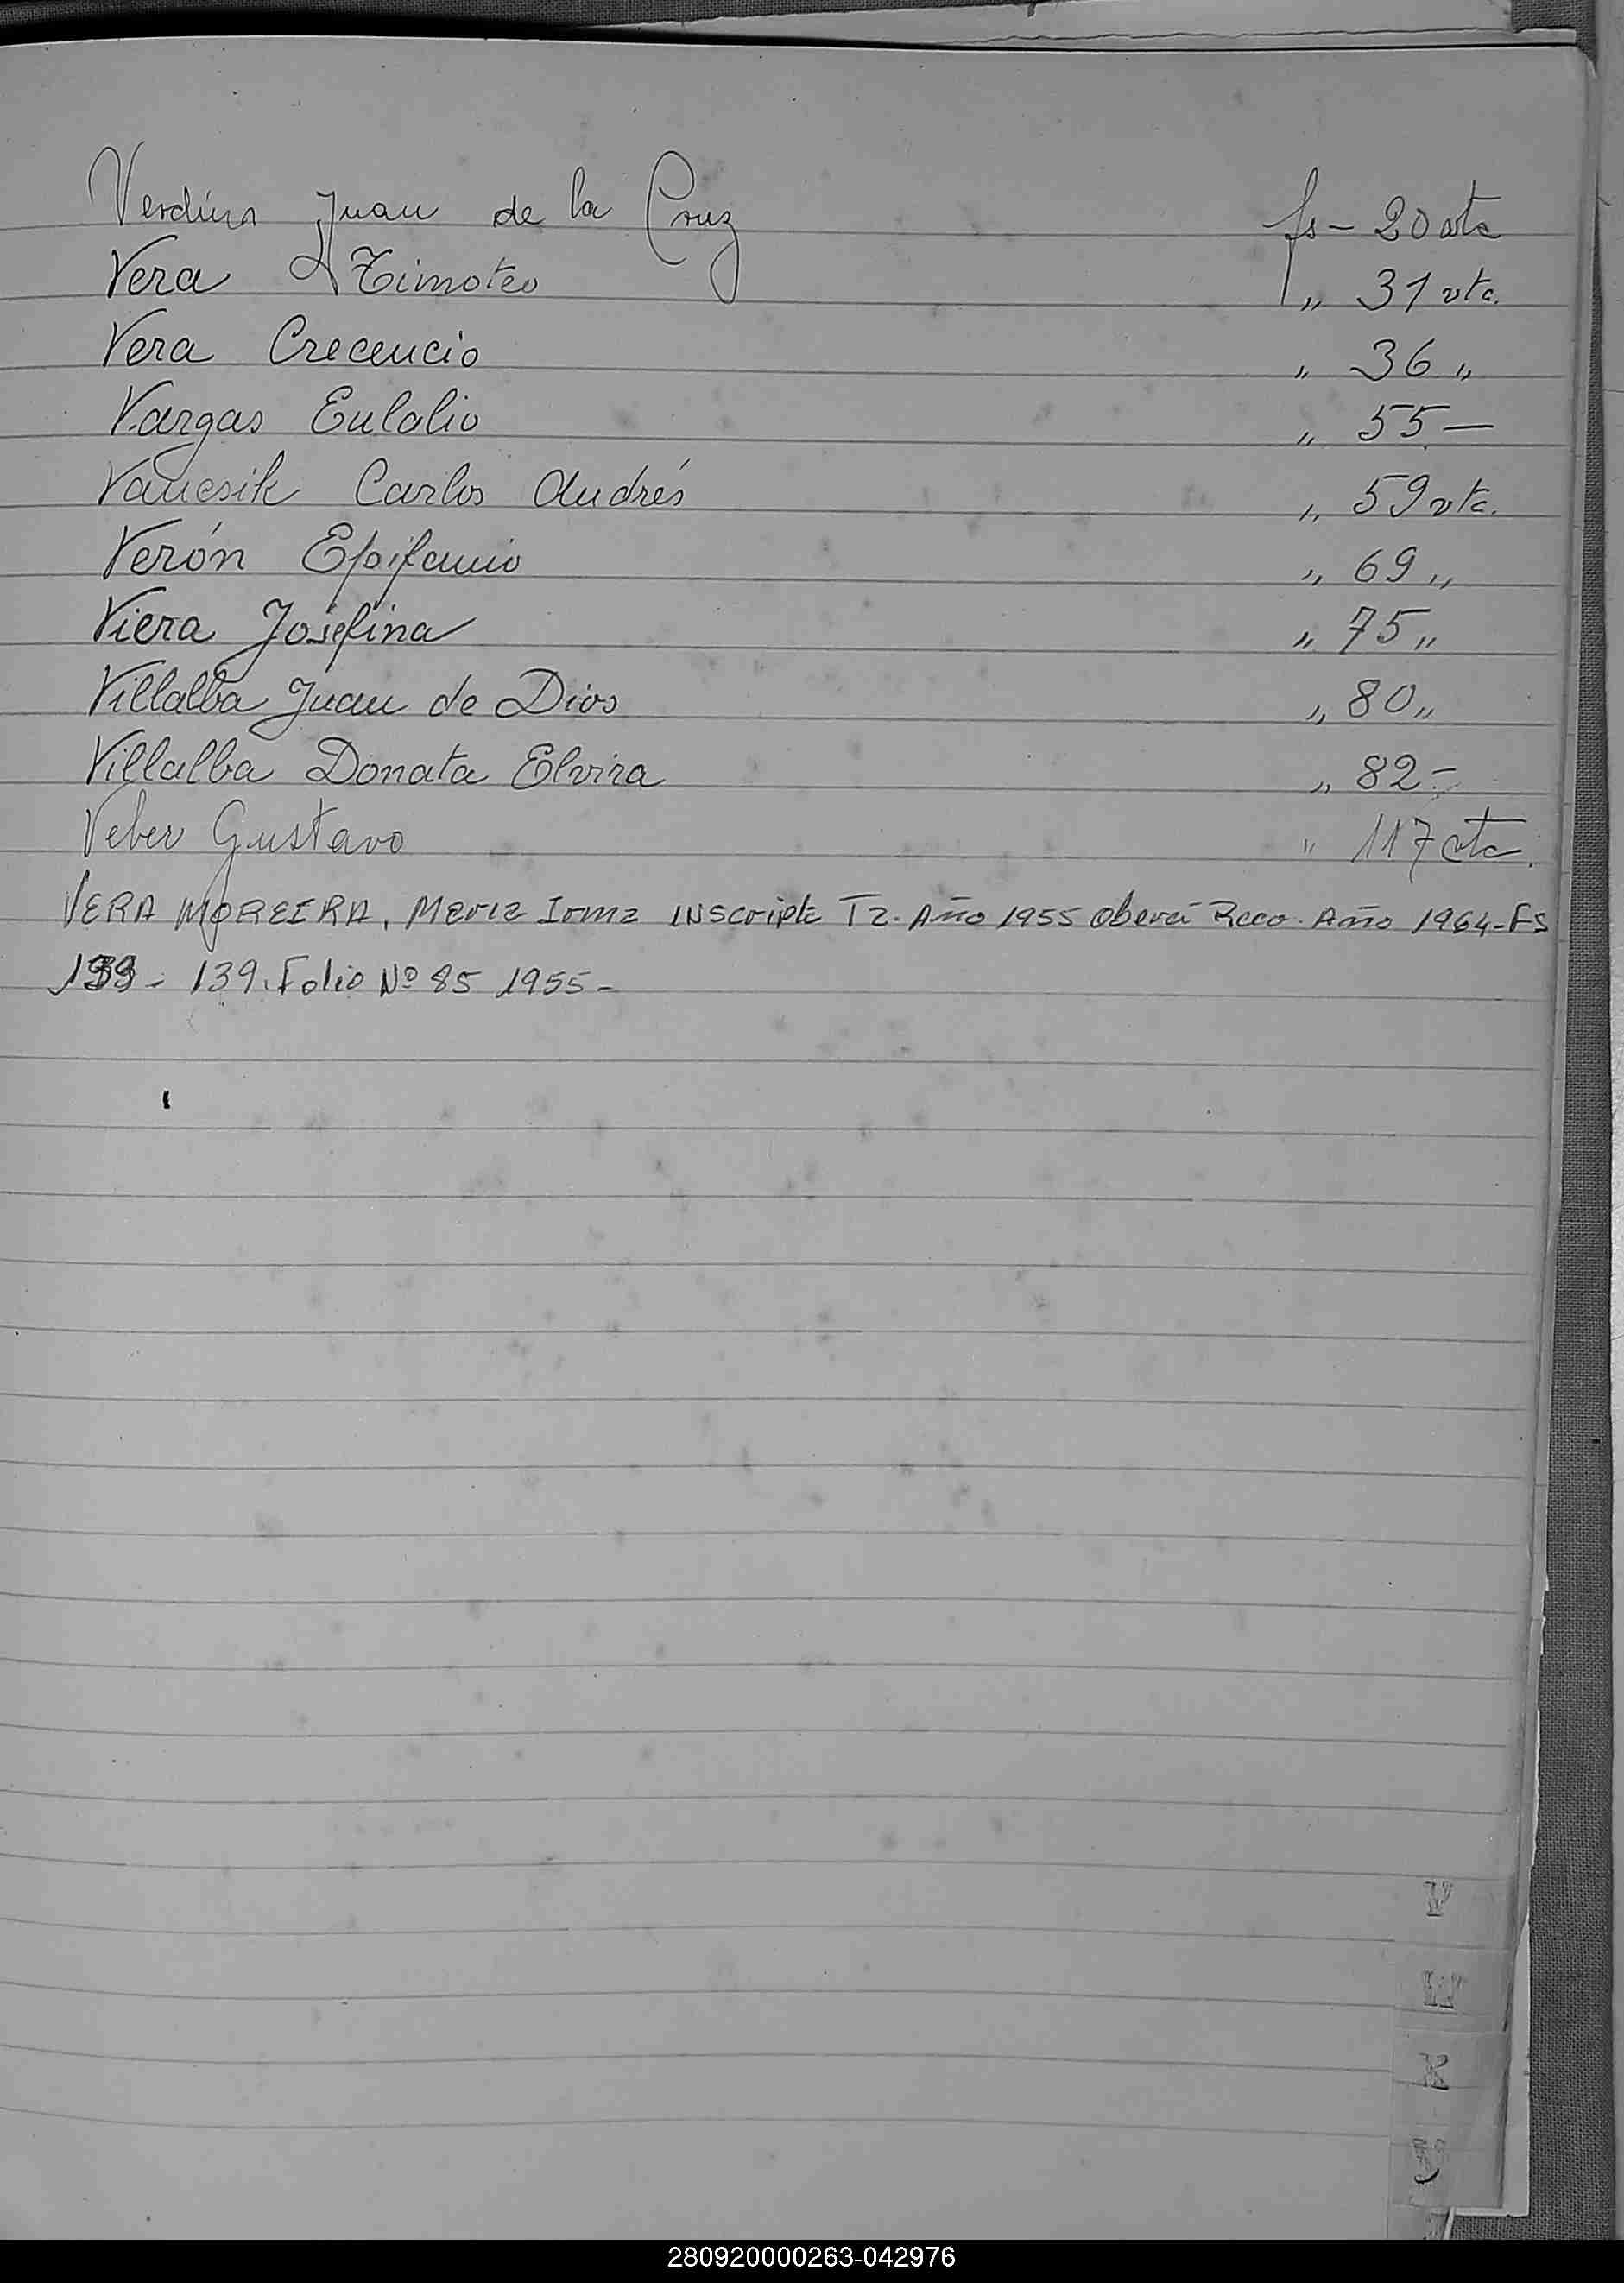 Verdún Juan de la Cruz fs - 20 vta
Vera Timoteo " 31 vta.
Vera Crecencio " 36 "
Vargas Eulalio " 55 —
Vancsik Carlos Andrés " 59 vta.
Verón Epifanio " 69 "
Viera Josefina " 75 "
Villalba Juan de Dios " 80 "
Villalba Donata Elvira " 82 -
Veber Gustavo " 117 vta.
VERA MOREIRA, Maria Irma INScripta Ta. Año 1955 Oberá Reco. Año 1964-FS
139 - 139. Folio Nº 85 1955 -
V
W
X
Y
280920000263-042976